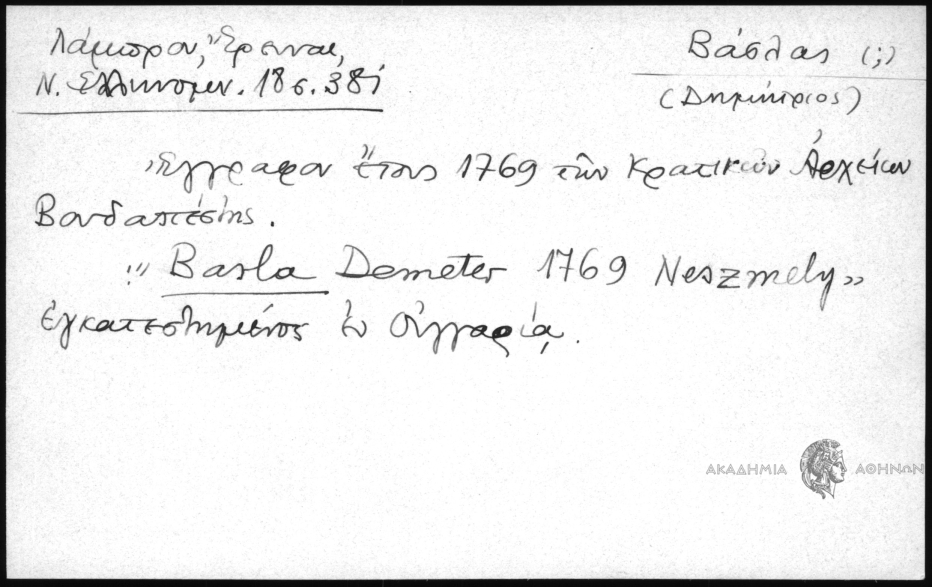 Λάμπρου, Ἔρευναι,
Ν. Ἑλληνομν. 18 σ. 381
Βάσλας (;)
(Δημήτριος)
Ἔγγραφον ἔτους 1769 τῶν Κρατικῶν Ἀρχείων
Βουδαπέστης.
"Basla Demeter 1769 Neszmely"
ἐγκατεστημένος ἐν Οὑγγαρίᾳ.
ΑΚΑΔΗΜΙΑ ΑΘΗΝΩΝ